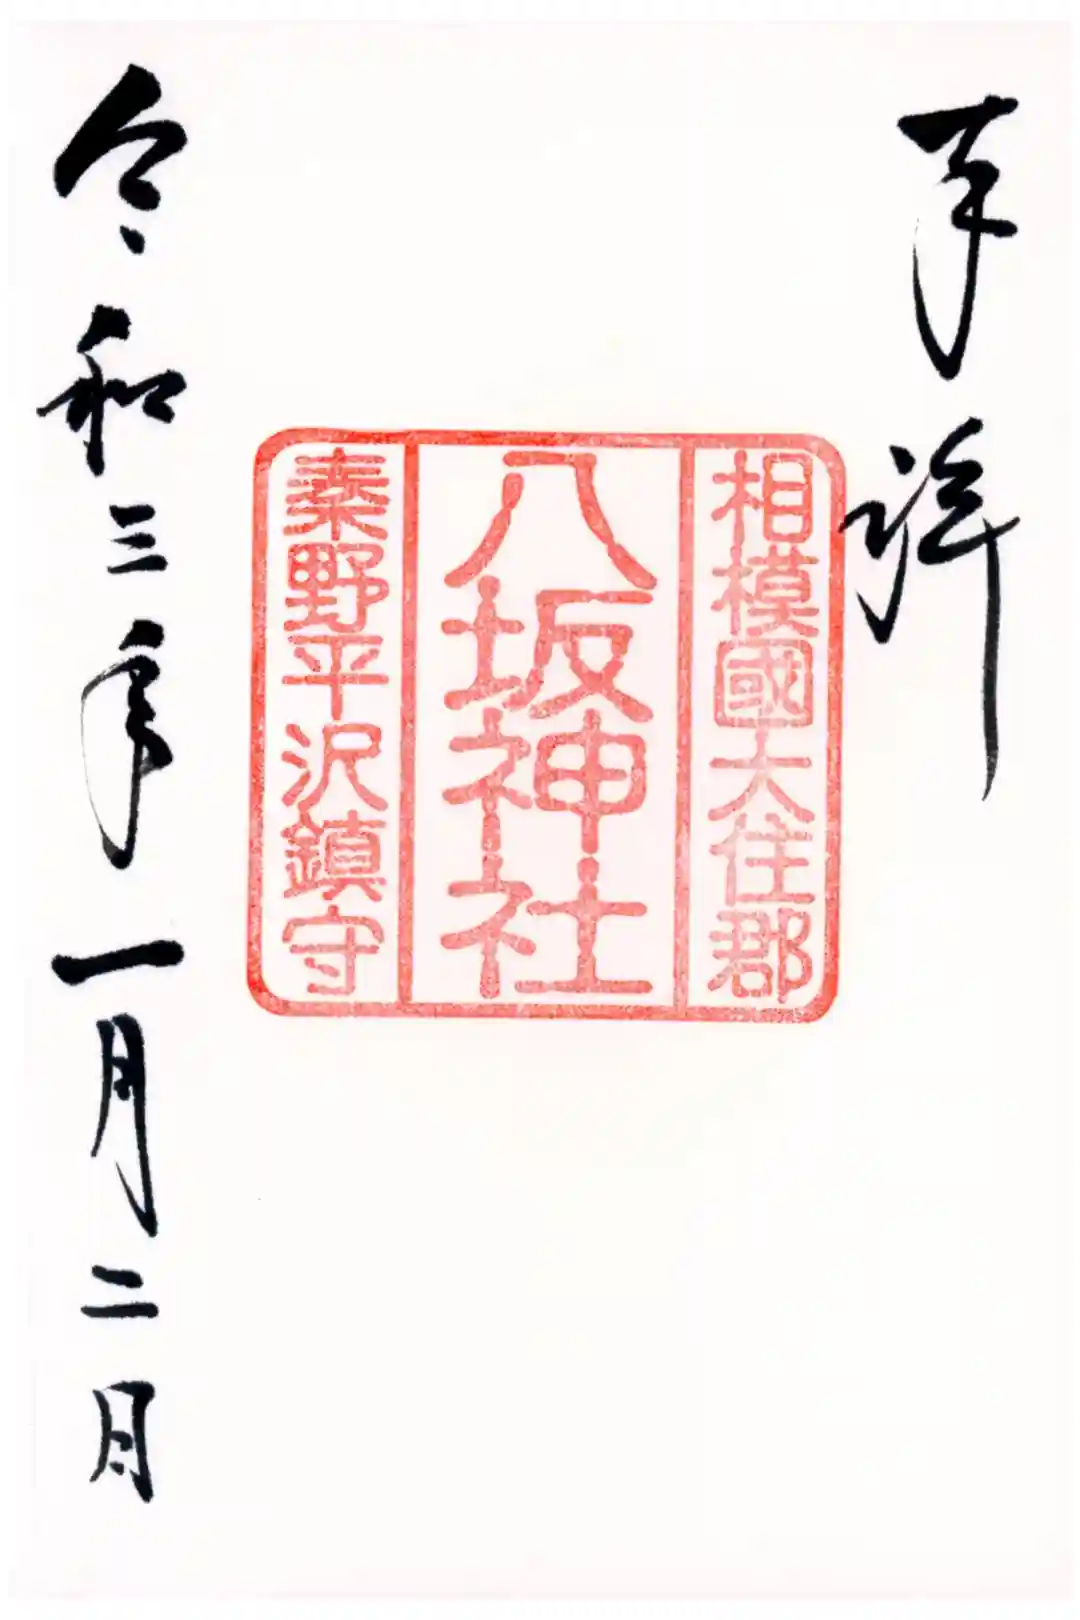 奉拝
相模國大住郡
八坂神社
秦野平沢鎮守
令和三年一月二日